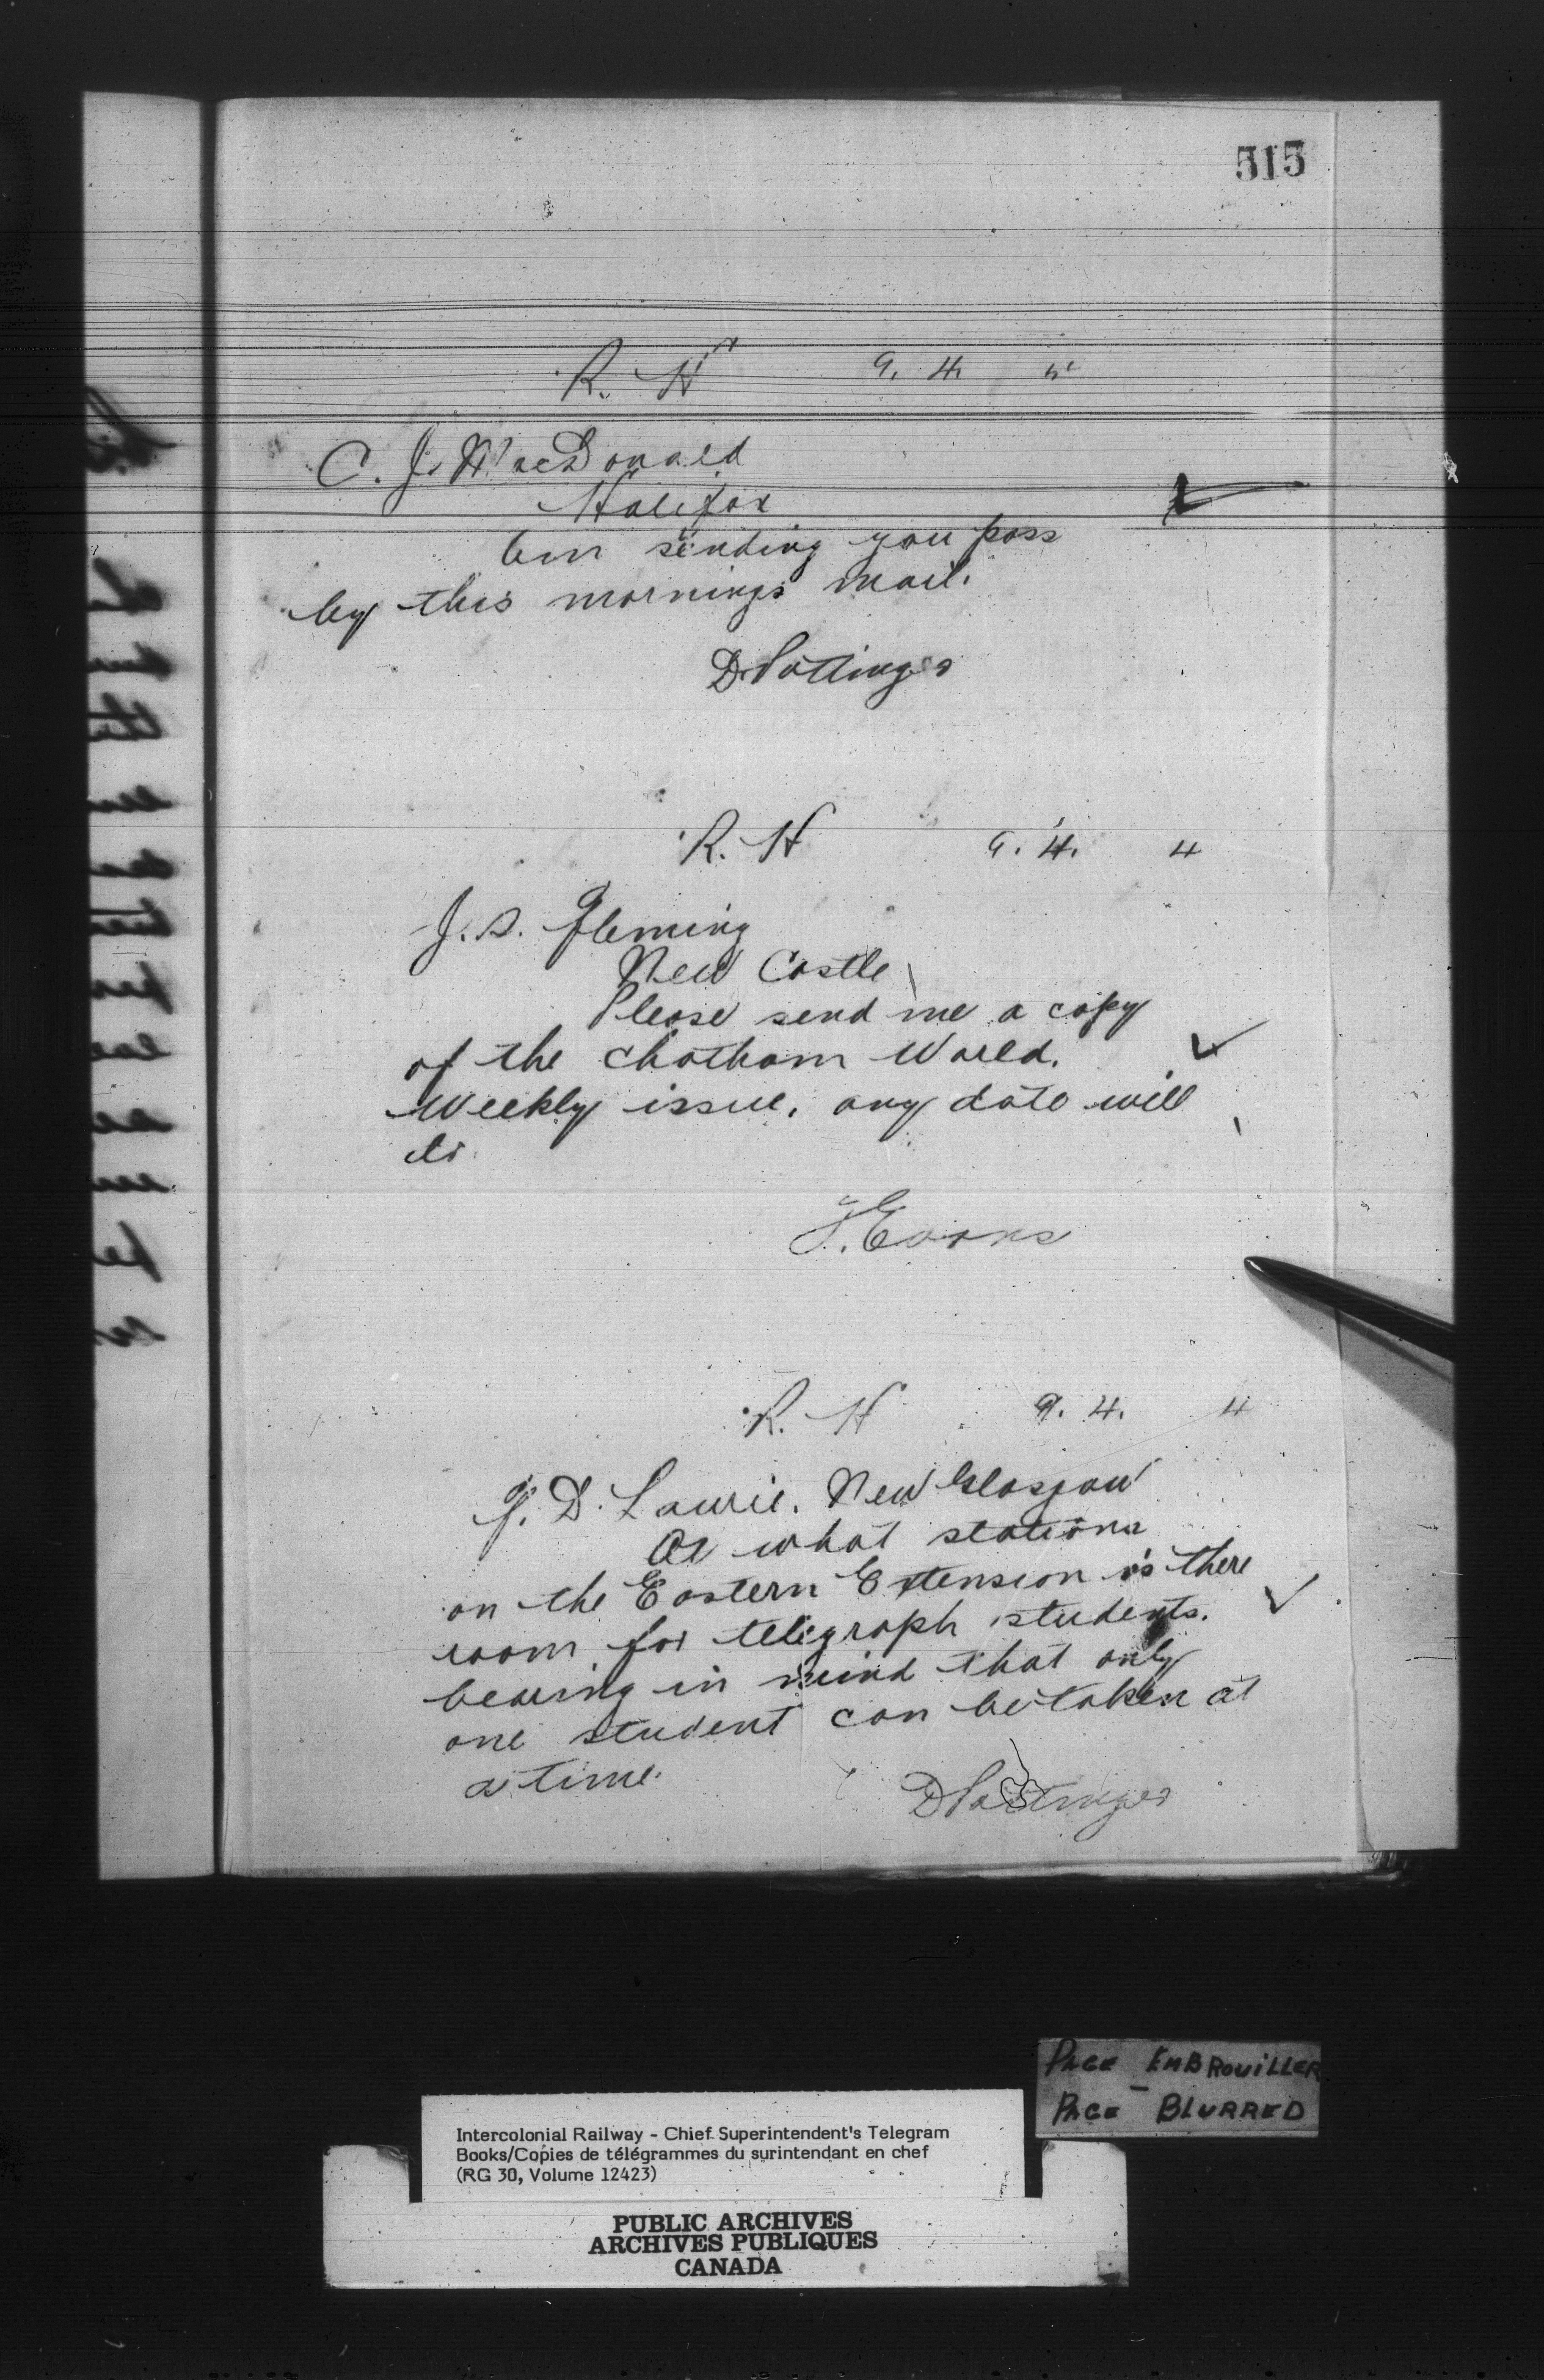 515
R. H 9. 4. 4
C. J. MacDonald
Halifax
Am sending you pass
by this mornings mail.
D. Pottinger
R. H 9. 4. 4
J. S. Fleming
New Castle
Please send me a copy
of the Chatham World.
Weekly issue, any date will
do.
T. Evans
R. H 9. 4. 4
J. D. Laurie. New Glasgow
At what stations
on the Eastern Extension is there
room for telegraph students.
bearing in mind that only
one student can be taken at
a time.
D Pottinger
PAGE EMBROUILLER
PAGE - BLURRED
Intercolonial Railway - Chief Superintendent's Telegram
Books/Copies de télégrammes du surintendant en chef
(RG 30, Volume 12423)
PUBLIC ARCHIVES
ARCHIVES PUBLIQUES
CANADA